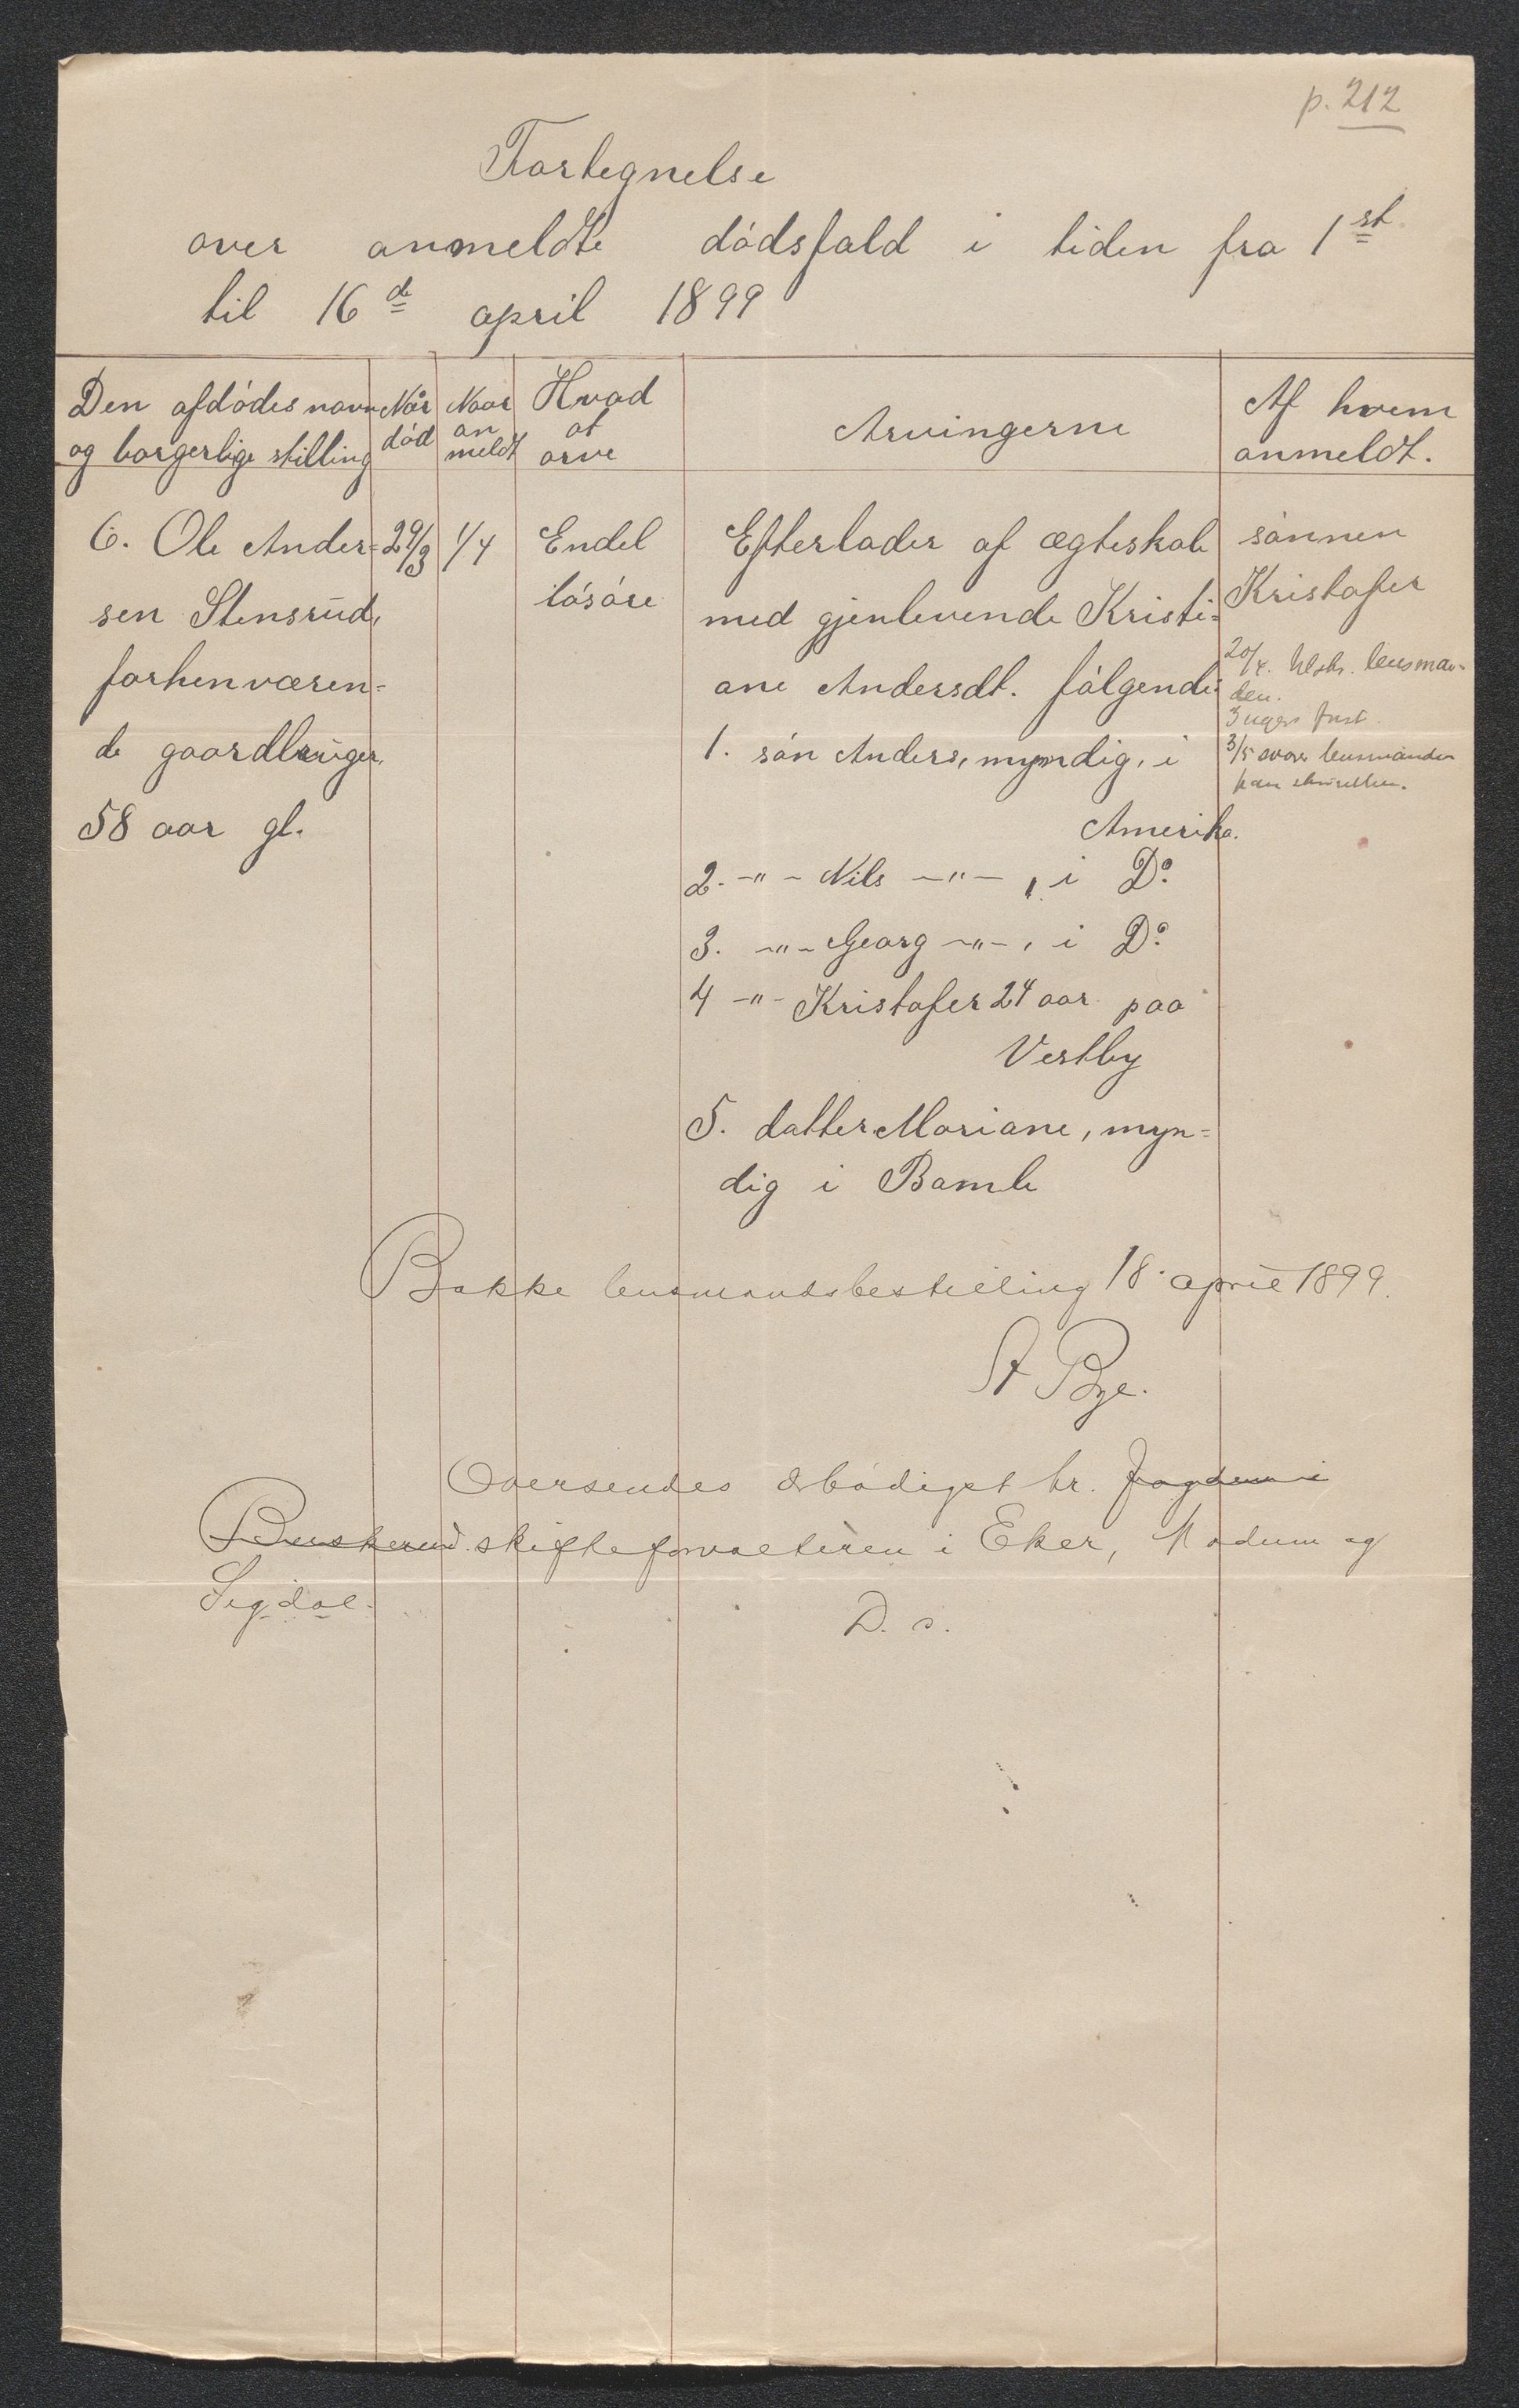 p. 212
Fortegnelse
over anmeldte dødsfald i tiden fra 1st
til 16de april 1899
Den afdødes navn
og borgerlige stilling
Når
død
Naar
an
meldt
Hvad
at
arve
Arvingerne
Af hvem
anmeldt.
6. Ole Ander=
sen Stensrud,
forhenværen=
de gaardbruger,
58 aar gl.
29/3
1/4
Endel
løsøre
Efterlader af ægteskab
med gjenlevende Kristi=
ane Andersdt. følgende:
1. søn Anders, myndig, i
Amerika.
2. -"- Nils -"-, i Do.
3. -"- Georg -"-, i Do.
4 -"- Kristofer 24 aar paa
Vestby
5. datter Mariane, myn=
dig i Bamle
sønnen
Kristofer
20/4. lensman-
den.
3 ugers frist.
3/5 svarer lensmanden
Bakke lensmandsbestilling 18. april 1899.
St Bye.
Oversendes ærbødigst hr. fogden i
Buskerud skifteforvalteren i Eker, Modum og
Sigdal.
D. s.